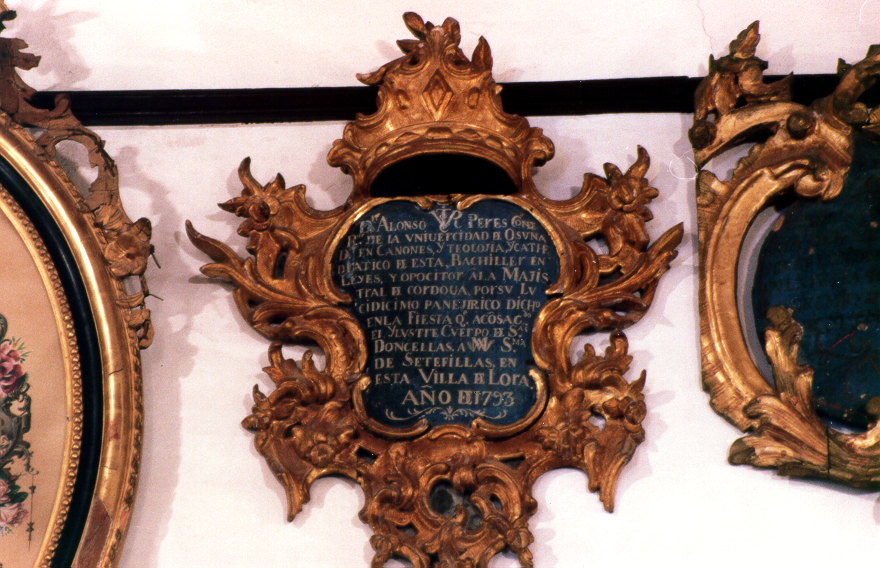 Dn ALONSO PERES
R. DE LA VNIUERCIDAD DE OSVNA
EN CANONES, Y TEOLOJIA, Y CATE
DRATICO DE ESTA, BACHILLER EN
LEYES, Y OPOCITOR ALA MAJIS
TRAL DE CORDOUA, POR SU LU
CIDICIMO PANEJIRICO DICHO
EN LA FIESTA Q. ACOSA
EL YLUSTTE CUERPO DE Sas
DONCELLAS, A Sma
DE SETEFILLAS, EN
ESTA VILLA DE LORA
AÑO DE 1793